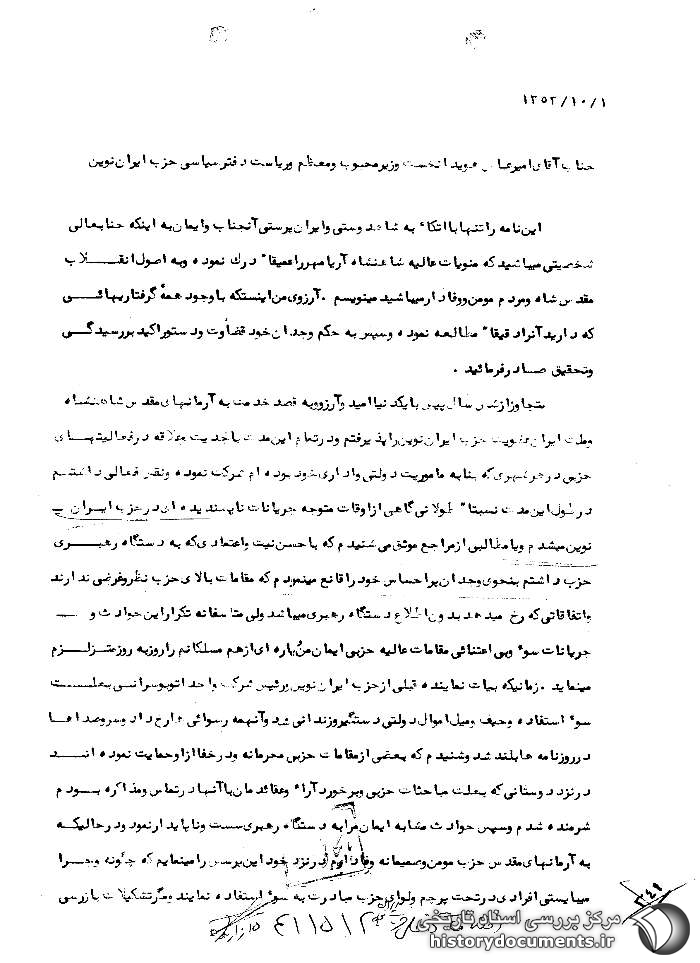 ۱۳۵۳/۱۰/۱
جناب آقای امیرعباس هویدا نخست وزیر محبوب و معظم و ریاست دفتر سیاسی حزب ایران نوین
این نامه را تنها با اتکاء به شاهدوستی و ایران پرستی آنجناب و ایمان به اینکه جنابعالی
شخصیتی میباشید که منویات عالیه شاهنشاه آریامهر را عمیقا" درک نموده و به اصول انقلاب
مقدس شاه و مردم مومن و وفادار میباشید مینویسم . آرزوی من اینستکه با وجود همهٔ گرفتاریهائی
که دارید آنرا دقیقا" مطالعه نموده و سپس به حکم وجدان خود قضاوت و دستور اکید بررسیدگی
و تحقیق صادر فرمائید .
متجاوز از شش سال پیش با یکدنیا امید و آرزو به قصد خدمت به آرمانهای مقدس شاهنشاه
وملت ایران عضویت حزب ایران نوین را پذیرفتم و در تمام این مدت با جدیت علاقه در فعالیتهای
حزبی در هر شهری که بنا به ماموریت دولتی و اداری خود بوده ام شرکت نموده و نقش فعالی داشتم
در طول این مدت نسبتا" طولانی گاهی از اوقات متوجه جریانات ناپسندیده ای در حزب ایران
نوین میشدم و یا مطالبی از مراجع موثق می شنیدم که با حسن نیت و اعتمادی که به دستگاه رهبری
حزب داشتم بنحوی وجدان پر احساس خود را قانع مینمودم که مقامات بالای حزب نظر و غرضی ندارند
و اتفاقاتی که رخ میدهد بدون اطلاع دستگاه رهبری میباشد ولی متاسفانه تکرار این حوادث و
جریانات سوء و بی اعتنائی مقامات عالیه حزبی ایمان من و پاره ای از هم مسلکانم را روز به روز متزلزل
مینماید . زمانیکه بیات نماینده قبلی از حزب ایران نوین و رئیس شرکت واحد اتوبوسرانی بعلت
سوء استفاده و حیف و میل اموال دولتی دستگیر و زندانی شد و آنهمه رسوائی خارج داد و سر و صداها
در روزنامه ها بلند شد و شنیدم که بعضی از مقامات حزبی محرمانه و در خفا از او حمایت نموده اند
در نزد دوستانی که بعلت مباحثات حزبی و برخورد آراء و عقائدمان با آنها در تماس و مذاکره بودم
شرمنده شدم و سپس حوادث مشابه ایمان مرا به دستگاه رهبری سست و ناپایدار نمود و در حالیکه
به آرمانهای مقدس حزب مومن و صمیمانه وفادارم در نزد خود این پرسش را مینمایم که چگونه و چرا
میبایستی افرادی در تحت پرچم و لوای حزب مبادرت به سوء استفاده نمایند و مگر تشکیلات بازرسی
۳۴۱
مرکز بررسی اسناد تاریخی
historydocuments.ir